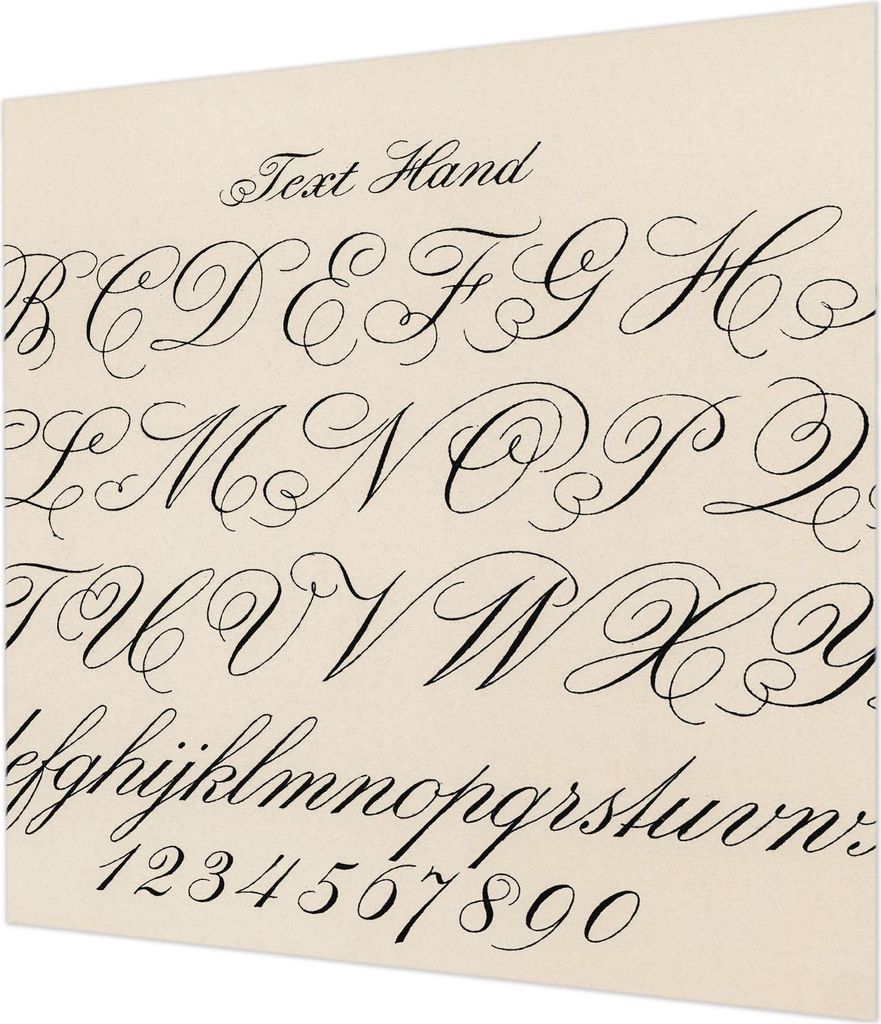 Text Hand
B C D E F G H
L M N O P Q
T U V W X Y
efghijklmnopqrstuvw
1234567890